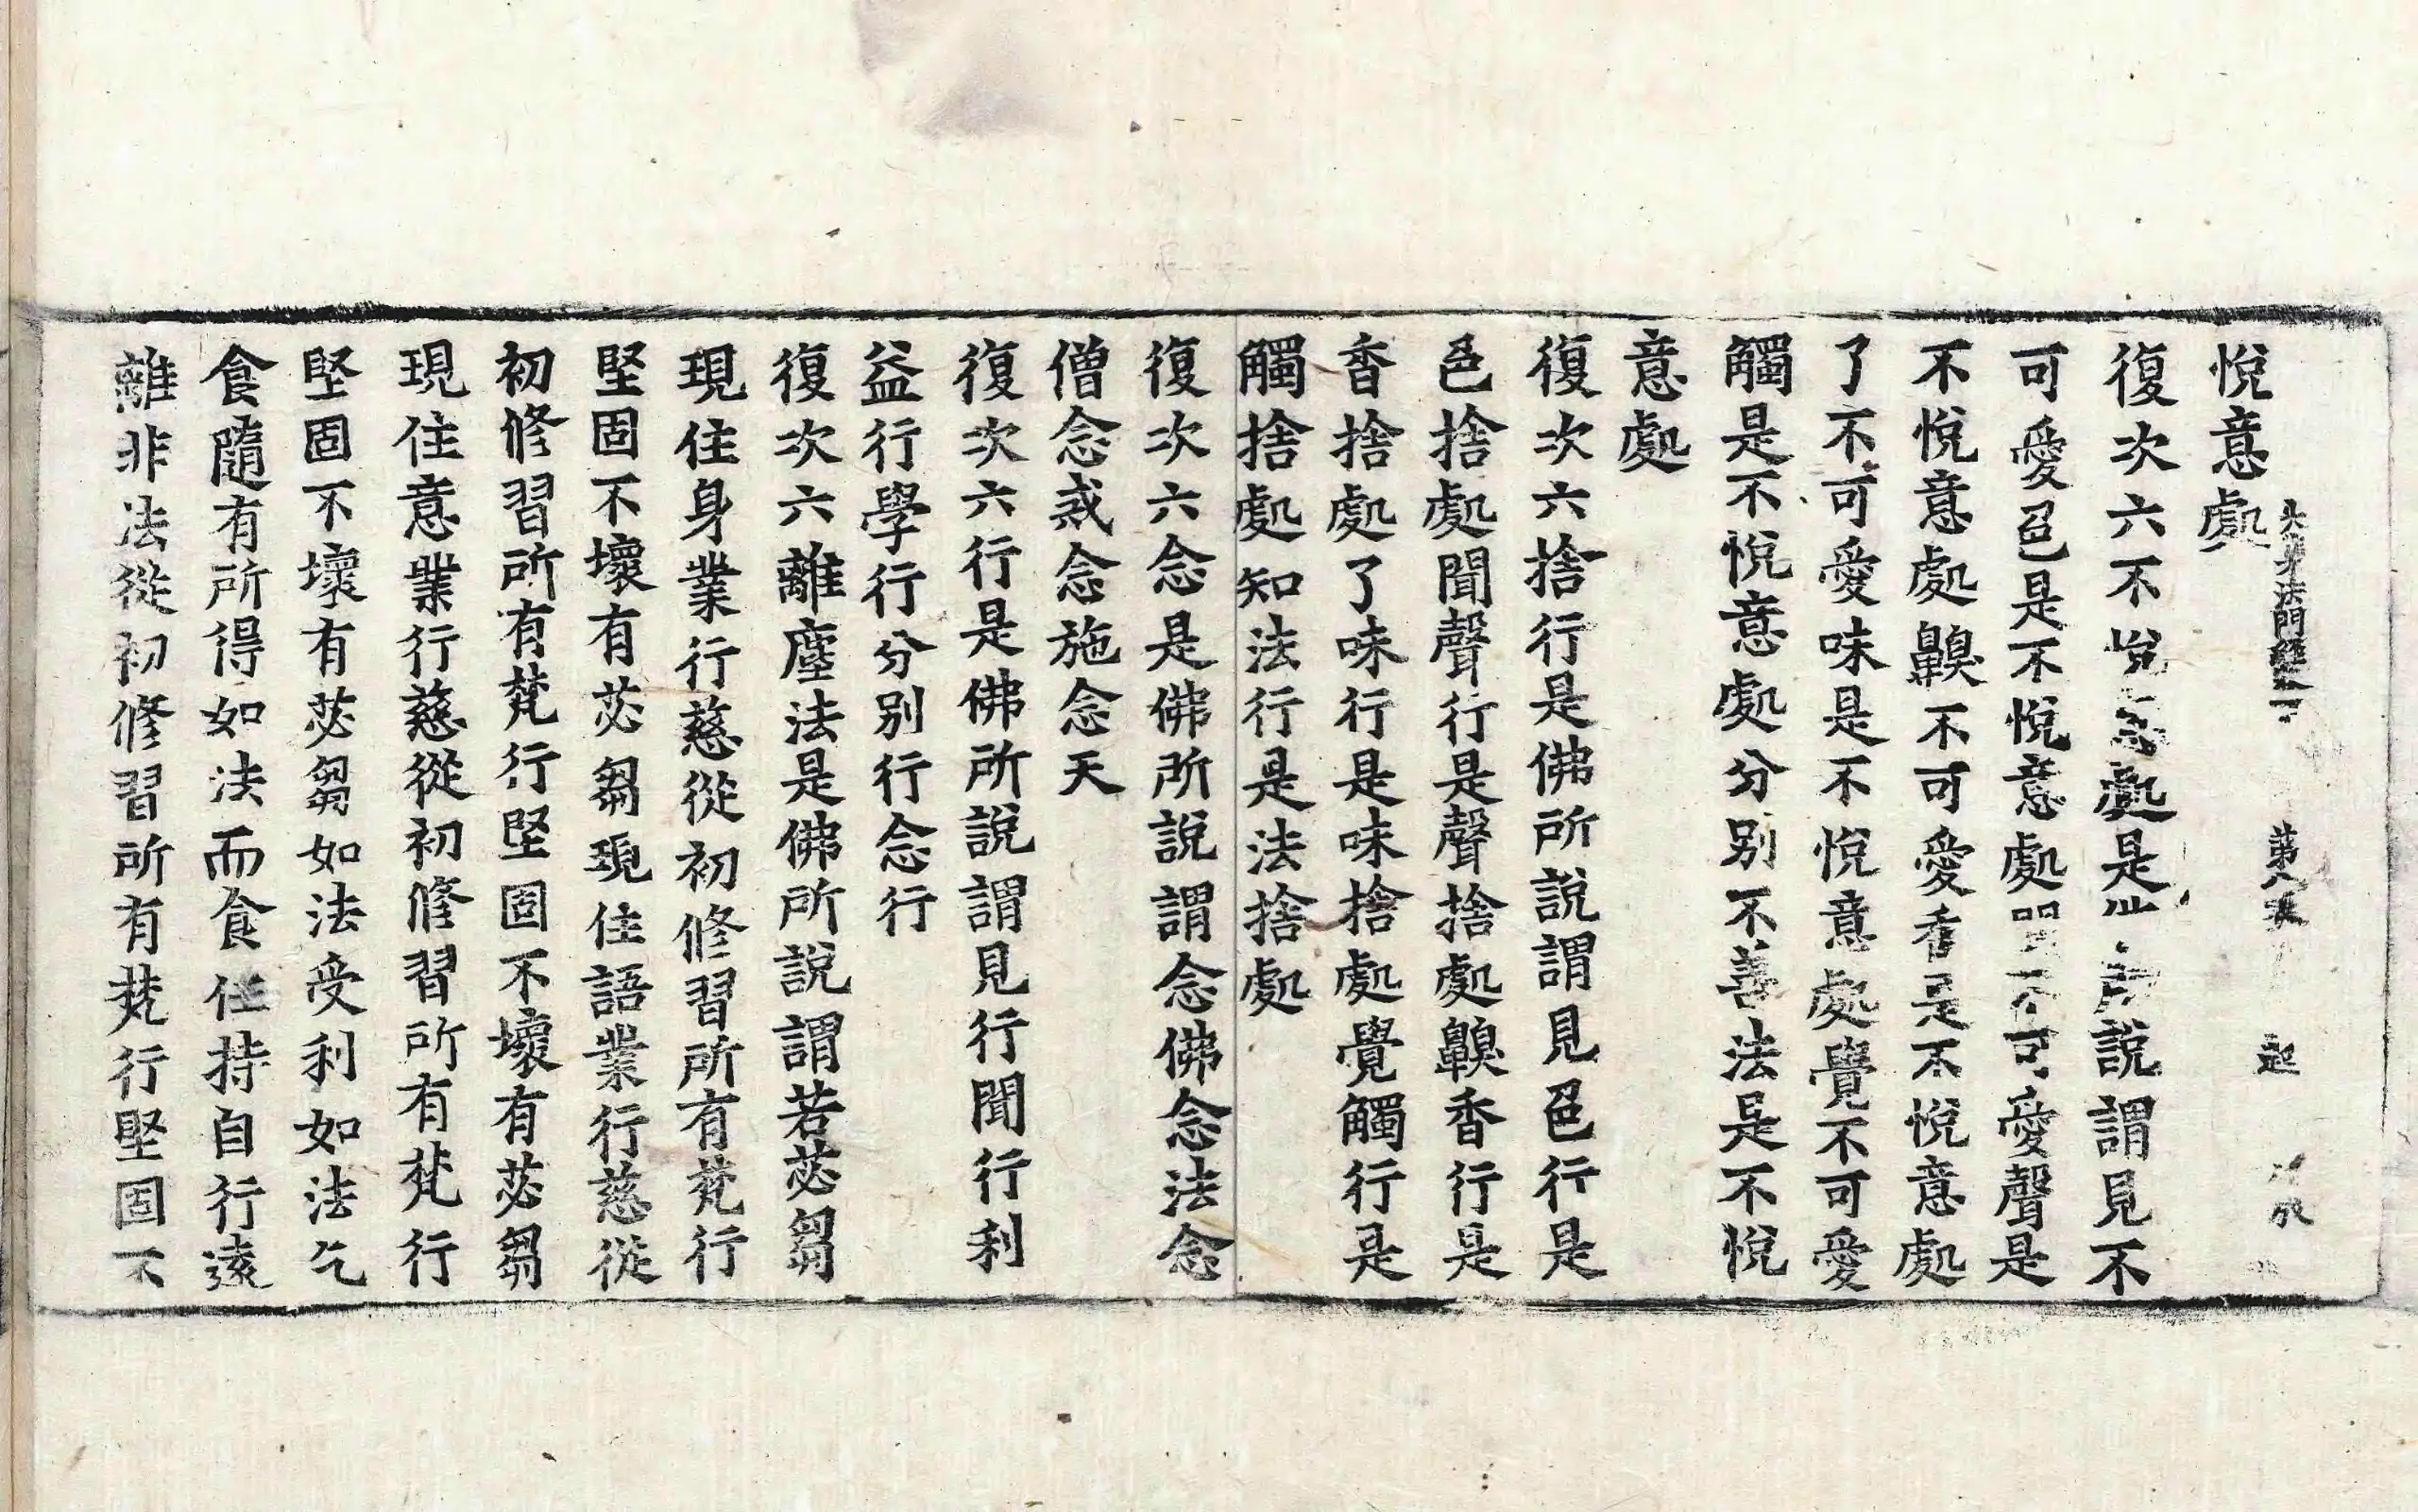 悅意處
大集法門經下 第 起
復次六不悅意處是佛所說謂見不
可愛色是不悅意處聞不可愛聲是
不悅意處齅不可愛香是不悅意處
了不可愛味是不悅意處覺不可愛
觸是不悅意處分別不善法是不悅
意處
復次六捨行是佛所說謂見色行是
色捨處聞聲行是聲捨處齅香行是
香捨處了味行是味捨處覺觸行是
觸捨處知法行是法捨處
復次六念是佛所說謂念佛念法念
僧念戒念施念天
復次六行是佛所說謂見行聞行利
益行學行分別行念行
復次六離塵法是佛所說謂若苾芻
現住身業行慈從初修習所有梵行
堅固不壞有苾芻現住語業行慈從
初修習所有梵行堅固不壞有苾芻
現住意業行慈從初修習所有梵行
堅固不壞有苾芻如法受利如法乞
食隨有所得如法而食任持自行遠
離非法從初修習所有梵行堅固不